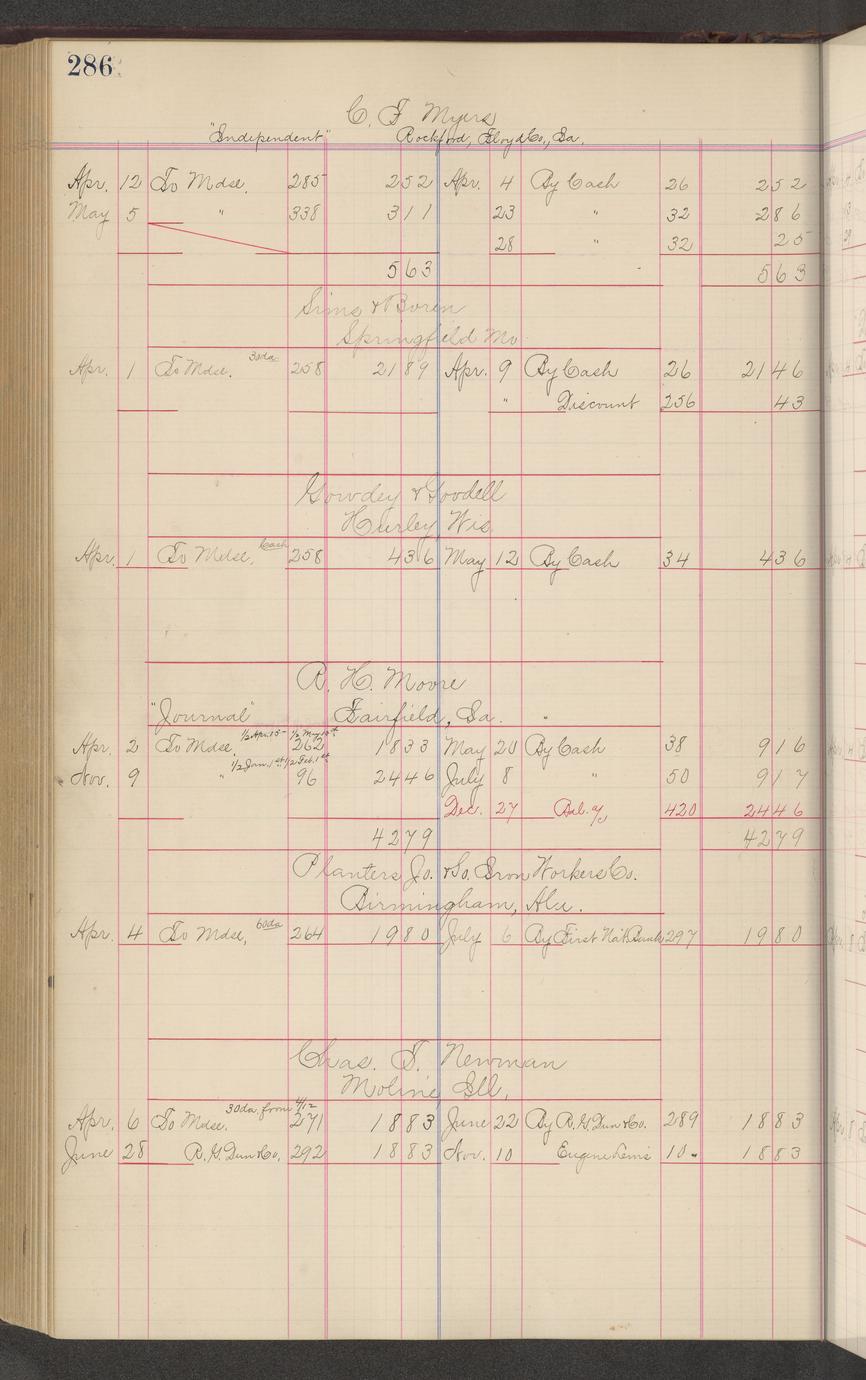 286
C. F. Myers
"Independent" Rockford, Floyd Co., Ia.
Apr. 12 To Mdse. 285 252 Apr. 4 By Cash 26 252
May 5 " 338 311 23 " 32 286
28 " 32 25
563 563
Sims & Boren
Springfield Mo
Apr. 1 To Mdse. 30da 258 2189 Apr. 9 By Cash 26 2146
" Discount 256 43
Gowdey & Goodell
Hurley, Wis
Apr. 1 To Mdse. Cash 258 436 May 12 By Cash 34 436
R. H. Moore
"Journal" Fairfield, Ia.
1/2 Apr. 15- 1/2 May 15th
Apr. 2 To Mdse. 262 1833 May 20 By Cash 38 916
1/2 Jan. 1st 1/2 Feb. 1st
Nov. 9 " 96 2446 July 8 " 50 917
Dec. 27 420 2446
4279 4279
Planters Jo. & So. Iron Workers Co.
Birmingham, Ala.
Apr. 4 To Mdse, 60da 264 1980 July 6 By First Nat'l Bank 297 1980
Chas. T. Newman
Moline Ill,
30da from 4/12
Apr. 6 To Mdse. 271 1883 June 22 By R. G. Dun & Co. 289 1883
June 28 R. G. Dun & Co. 292 1883 Nov. 10 Eugene Lewis 10 1883